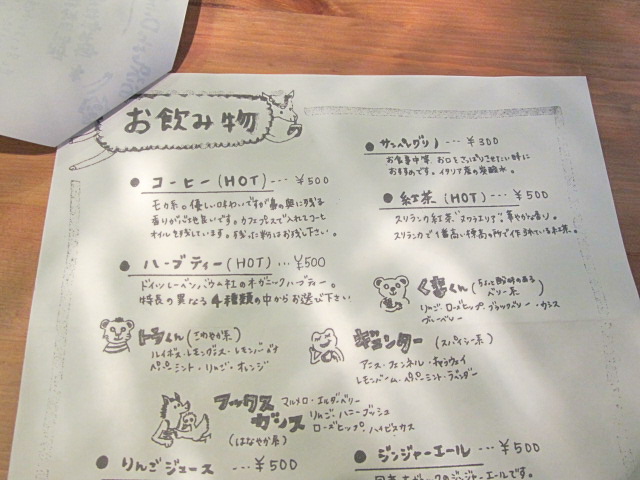 お飲み物
コーヒー (HOT) … ¥500
モカ系。優しい味わいですが鼻の奥に残る
香りが心地良いです。カフェプレスで入れてコーヒー
オイルを残しています。残った粉はお残し下さい。
ハーブティー (HOT) … ¥500
ドイツ レーベンスバウム社のオーガニックハーブティー。
特長の異なる4種類の中からお選び下さい
トラくん (さわやか系)
ルイボス・レモングラス・レモンバーベナ
ペパーミント・りんご・オレンジ
フックス
ガンス
(はなやか系)
マルメロ・エルダーベリー
りんご・ハニーブッシュ
ローズヒップ・ハイビスカス
りんごジュース … ¥500
サンペレグリノ … ¥300
お食事中等、お口をさっぱりさせたい時に
おすすめです。イタリア産の炭酸水。
紅茶 (HOT) … ¥500
スリランカ紅茶"ヌワラエリヤ"華やかな香り。
スリランカで1番高い標高の所で作られている紅茶。
くまくん (ちょっと酸味のある
ベリー系)
りんご・ローズヒップ・ブラックベリー・カシス
ブルーベリー
ギュンター (スパイシー系)
アニス・フェンネル・キャラウェイ
レモンバーム・ペパーミント・ラベンダー
ジンジャーエール … ¥500